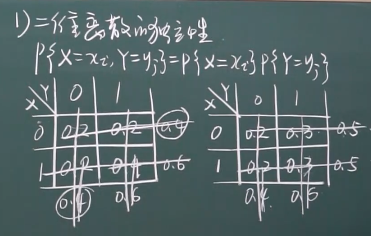 1)二维离散的独立性
P{X=xᵢ,Y=yⱼ}=P{X=xᵢ}P{Y=yⱼ}
X Y 0 1
0 0.2 0.2 0.4
1 0.2 0.4 0.6
0.4 0.6
X Y 0 1
0 0.2 0.3 0.5
1 0.2 0.3 0.5
0.4 0.6